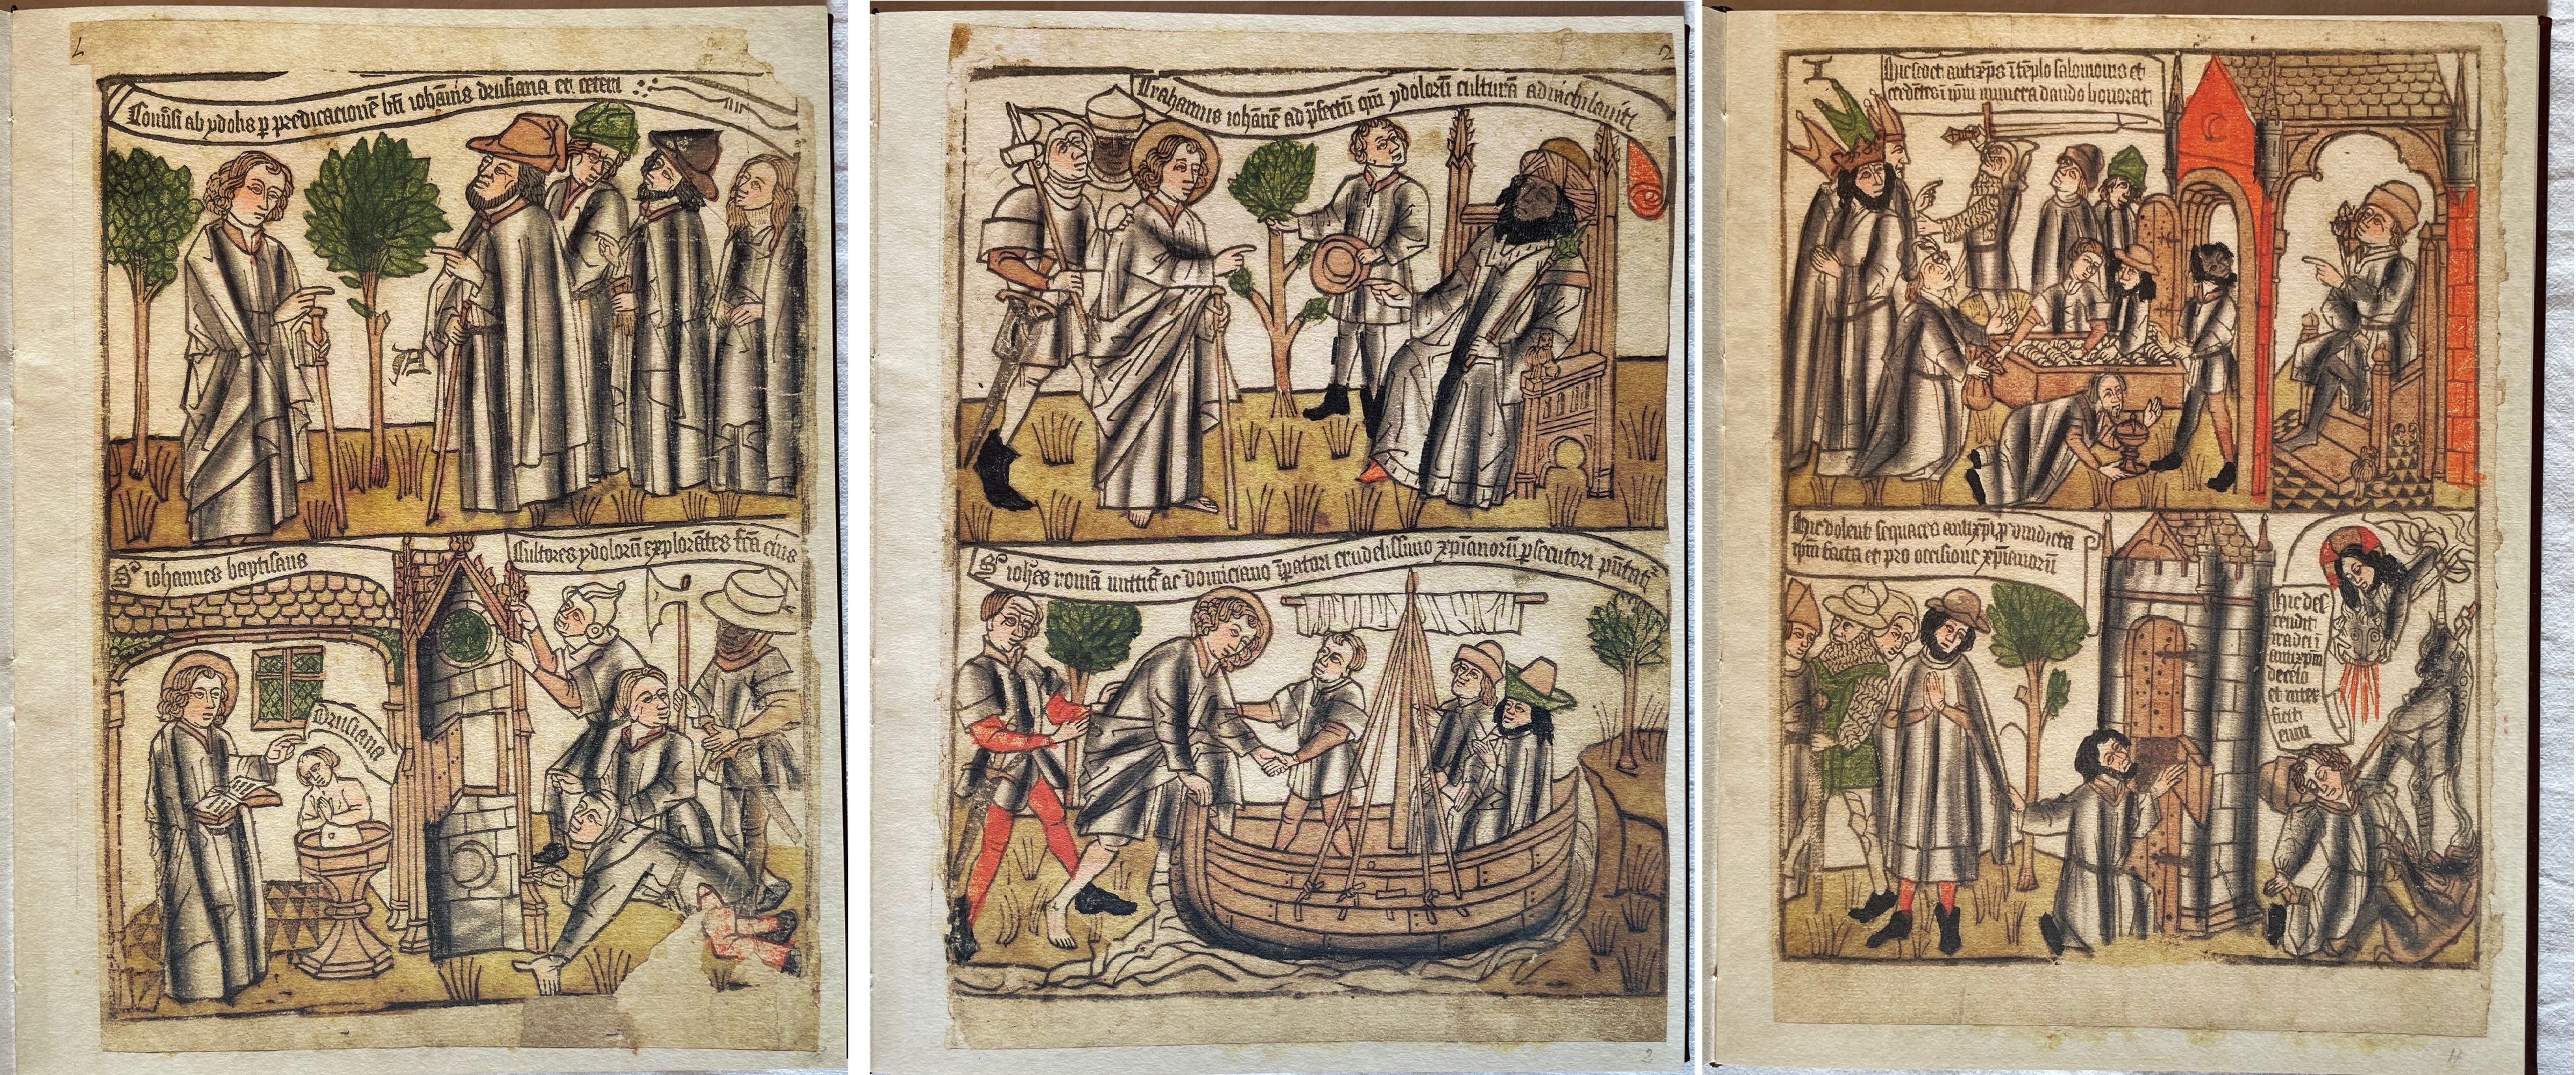 Conūsi ab ydolis p predicacionē bti iohānis drusiana et ceteri
A
Sᵒ iohannes baptisans
Cultores ydolorū explorātes fcā eius
Drusiana
Trahamus iohānē ad pfectū qui ydolorū culturā adnichilauit
Sᵒ iohēs romā mittit ac domiciano ipatori crudelissimo xpianorū psecutori pūtatʳ
2
I
Hic sedet antixps ī tēplo salomonis et
credētes ī ipm munera dando honorat
Hic dolent sequaces antixpi p vindicta
ipm facta et pro occisione xpianorū
Hic des
cendit
antixpm
de celo
et inter
ficit
eum